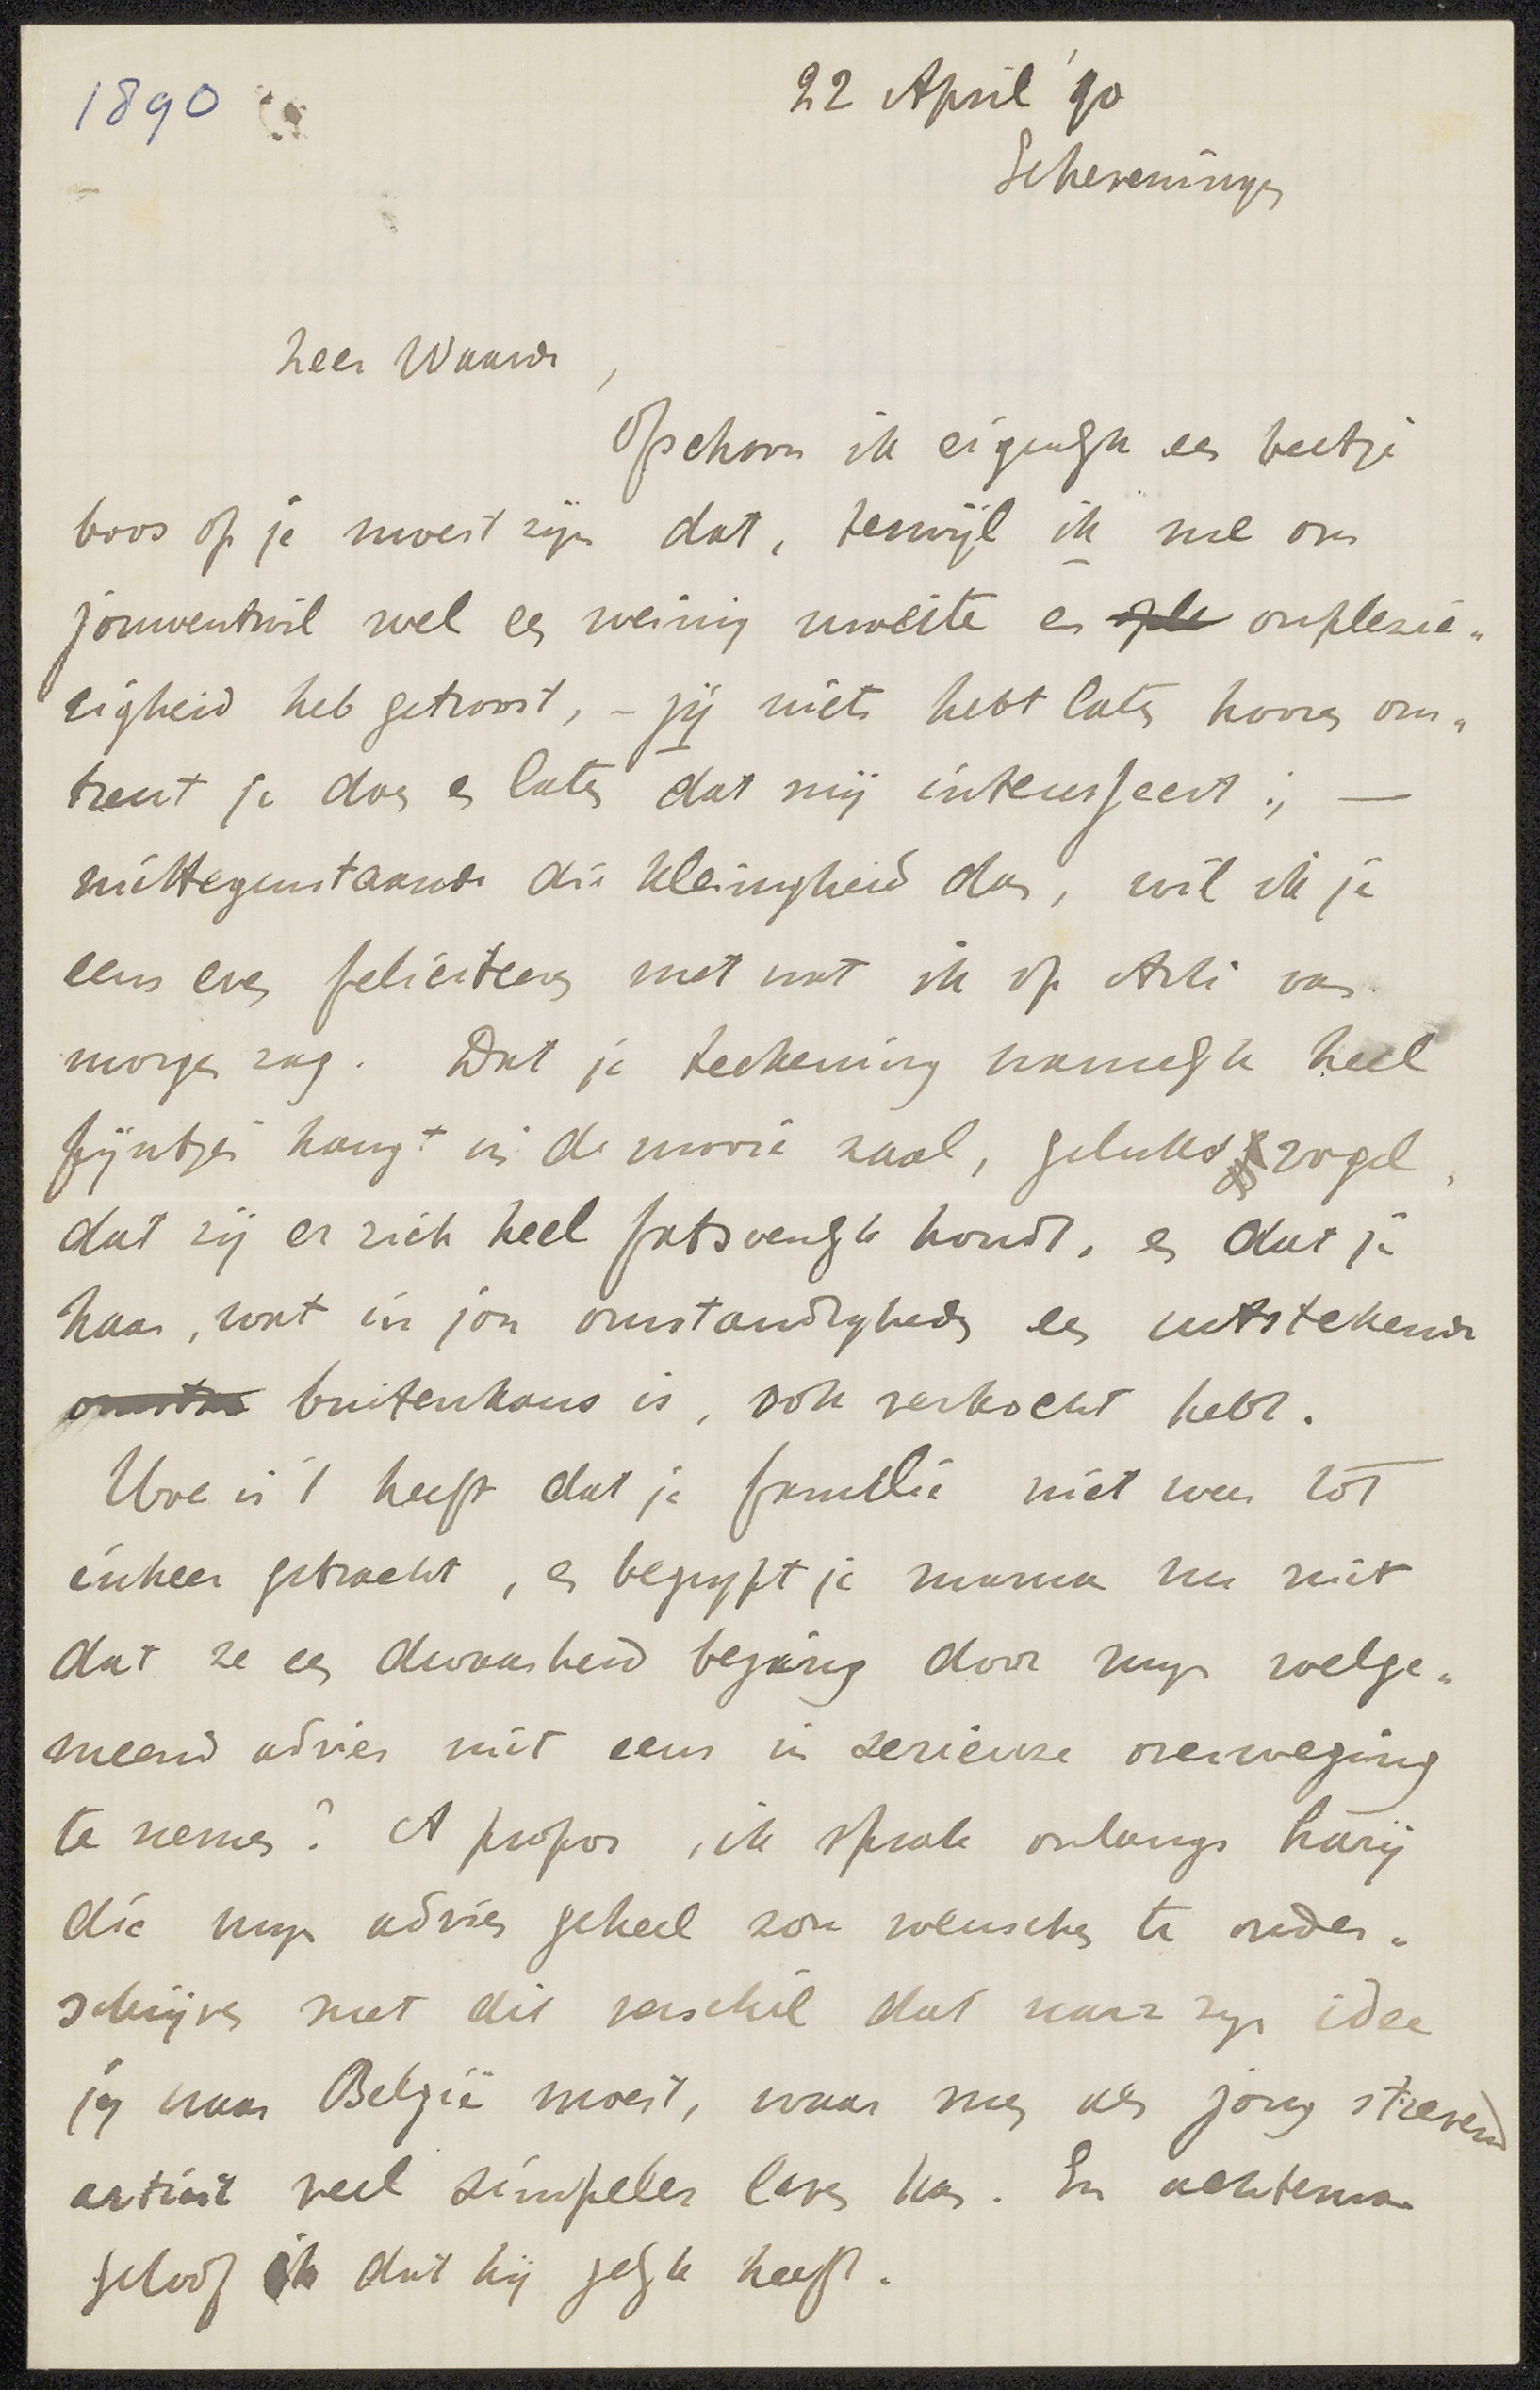 1890
22 April '90
Scheveningen
Zeer Waarde,
Ofschoon ik eigenlijk een beetje
boos op je moest zijn dat, terwijl ik me om
jouwentwil wel een weinig moeite en ple onplezie-
righeid heb getroost, – jij niets hebt laten hooren om-
trent je doen en laten dat mij interesseert ; —
niettegenstaande die kleinigheid dan, wil ik je
eens even feliciteeren met wat ik op Arti van
morgen zag. Dat je teekening namelijk heel
fijntjes hangt in de mooie zaal, geluksvogel,
dat zij er zich heel fatsoenlijk houdt, en dat je
haar, wat in jou omstandigheden een uitstekende
omstan buitenkans is, ook verkocht hebt.
Hoe is 't heeft dat je familie niet weer tot
inkeer gebracht, en begrijpt je mama nu niet
dat ze een dwaasheid beging door mijn welge-
meend advies niet eens in serieuze overweging
te nemen? A propos, ik sprak onlangs Harij
die mijn advies geheel zou wenschen te onder-
schrijven met dit verschil dat naar zijn idee
jij naar België moest, waar men als jong strevend
artiest veel simpeler leven kan. En achterna
geloof ik dat hij gelijk heeft.